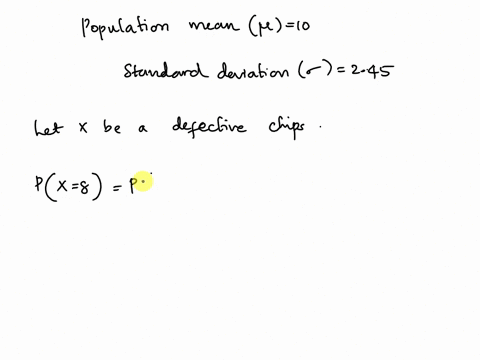 Population mean (μ)=10
Standard deviation (σ) = 2.45
Let x be a defective chips.
P(X=8) = P